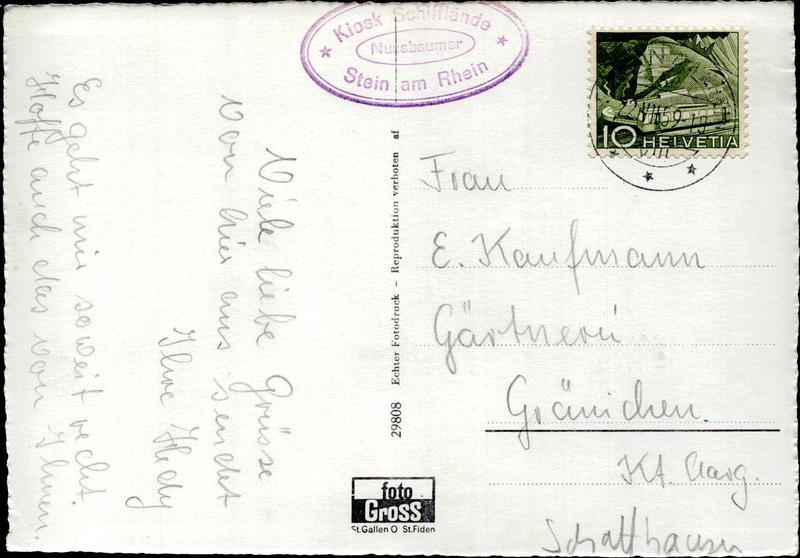 Kiosk Schifflände
Nussbaumer
Stein am Rhein
10 HELVETIA
Es geht mir soweit recht.
Hoffe auch das von Ihnen.
Viele liebe Grüsse
von hier aus sendet
Ihre Hedy
29808 Echter Fotodruck - Reproduktion verboten af
foto
Gross
St.Gallen O St.Fiden
Frau
E. Kaufmann
Gärtnerei
Gränichen.
Kt. Aarg.
Schaffhausen